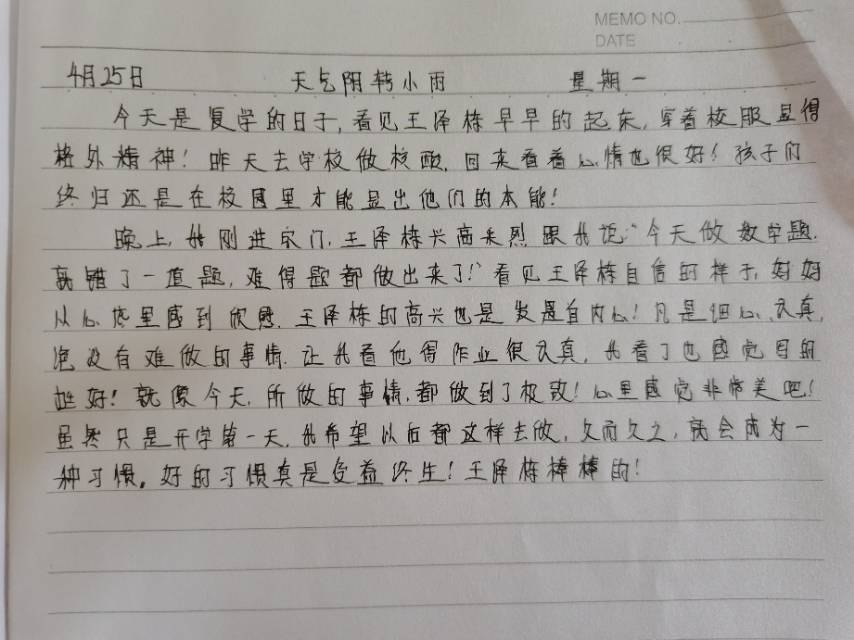 MEMO NO.
DATE
4月25日 天气阴转小雨 星期一
今天是复学的日子,看见王泽栋早早的起床,穿着校服显得
格外精神!昨天去学校做核酸,回来看着心情也很好!孩子们
终归还是在校园里才能显出他们的本能!
晚上,我刚进家门,王泽栋兴高采烈跟我说"今天做数学题,
就错了一道题,难得题都做出来了!"看见王泽栋自信的样子,妈妈
从心底里感到欣慰,王泽栋的高兴也是发是自内心!凡是细心、认真,
没有难做的事情,让我看他得作业很认真,我看了也感觉
挺好!就像今天,所做的事情,都做到了极致!心里感觉非常美吧!
虽然只是开学第一天,我希望以后都这样去做,久而久之,就会成为一
种习惯。好的习惯真是受益终生!王泽栋棒棒的!